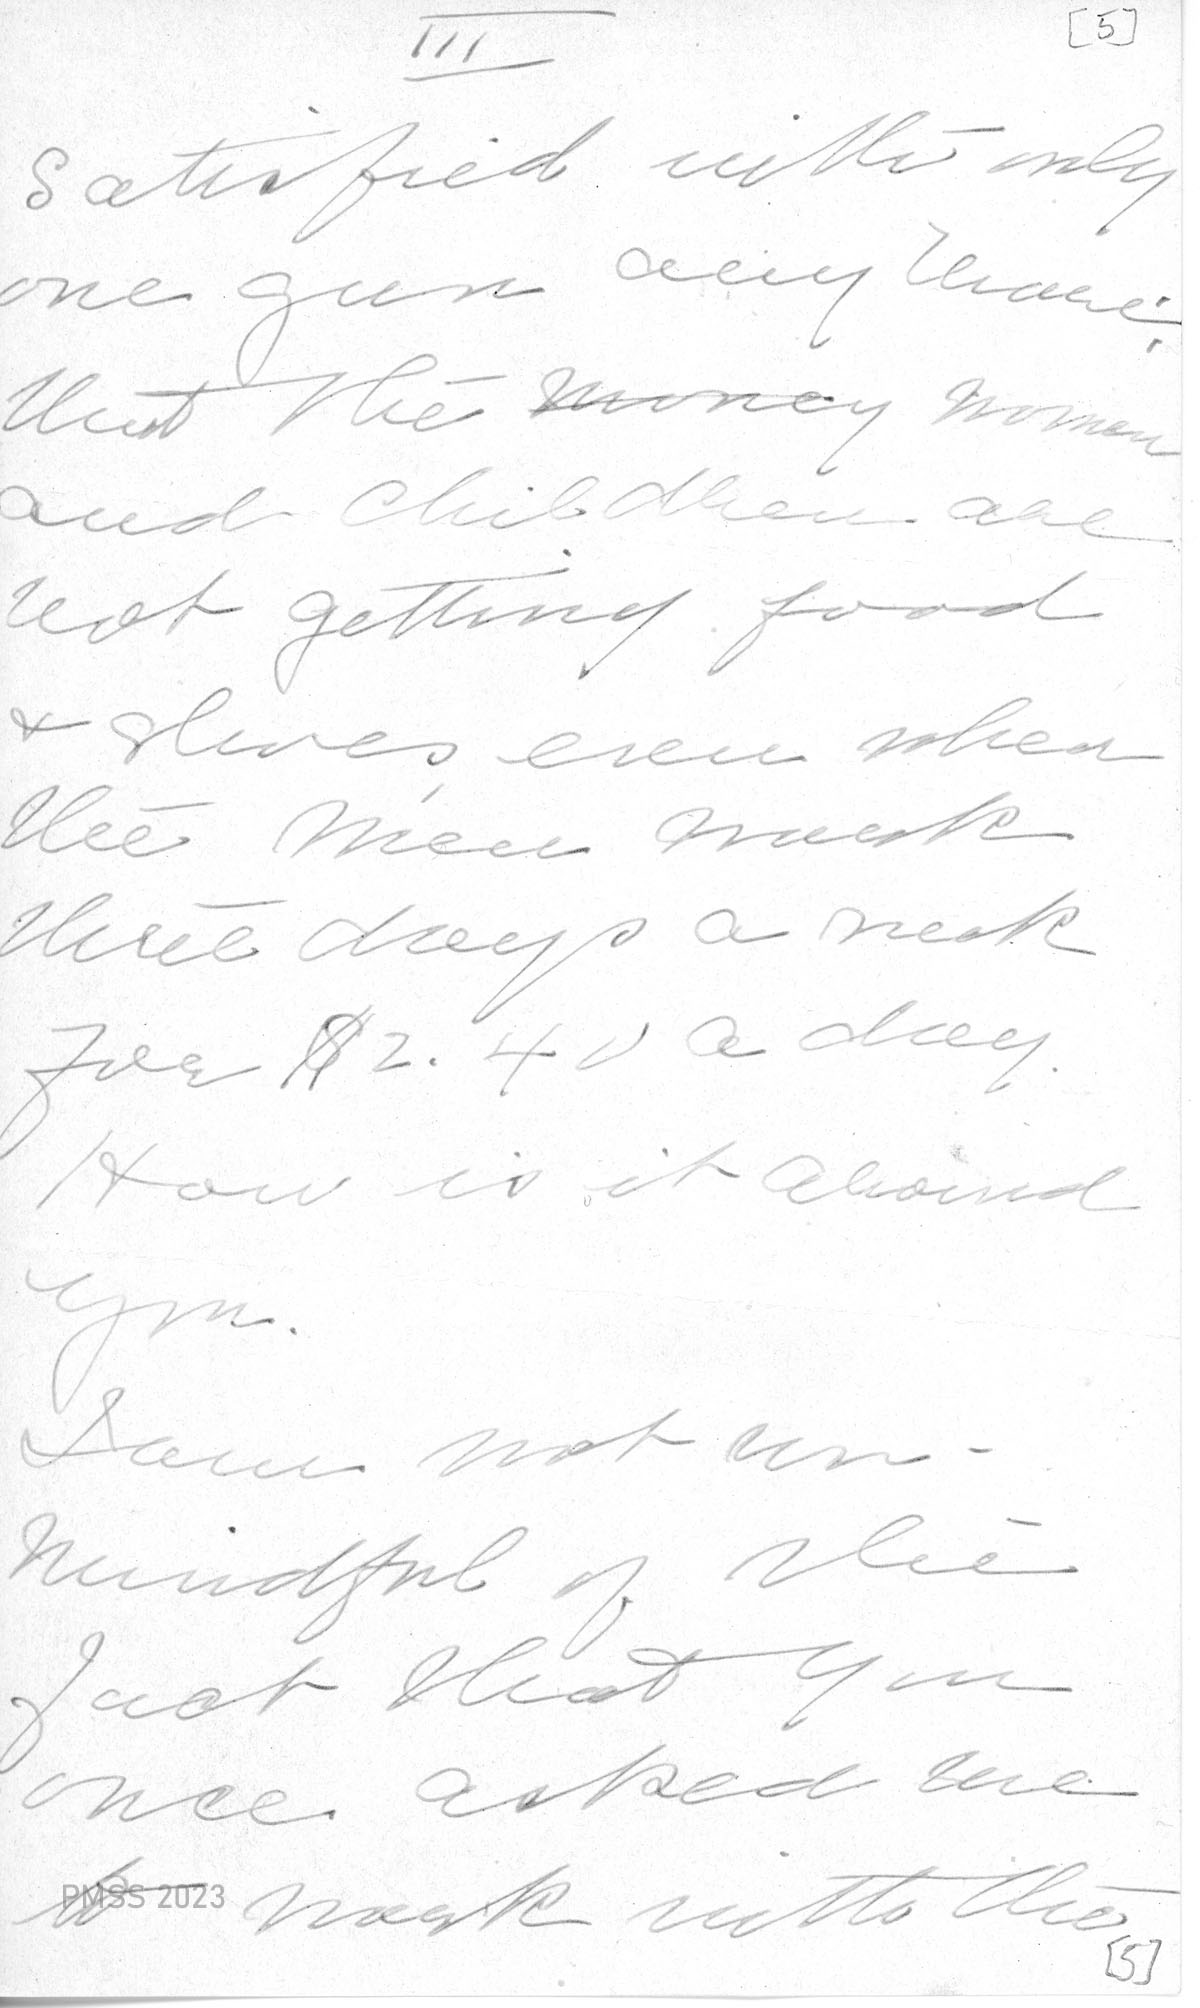 III [5]
satisfied with only
one gun any more;
that the money women
and children are
not getting food
& shoes, even when
the men work
three days a week
for $2.40 a day.
How is it around
you.
I am not un-
mindful of the
fact that you
once asked me
to work with the
PMSS 2023
[5]